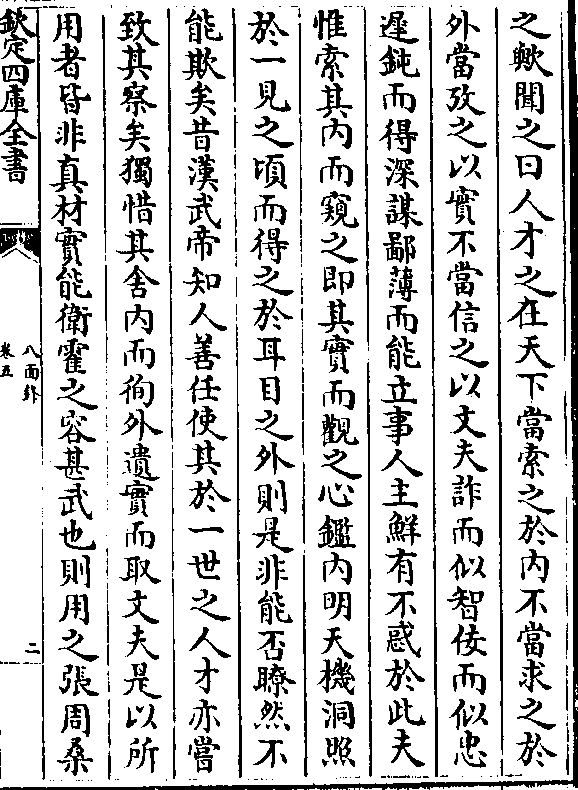 之歟聞之曰人才之在天下當索之於内不當求之於
外當攷之以實不當信之以文夫詐而似智佞而似忠
遲鈍而得深謀鄙薄而能立事人主鮮有不惑於此夫
惟索其内而窺之即其實而觀之心鑑内明天機洞照
於一見之頃而得之於耳目之外則是非能否瞭然不
能欺矣昔漢武帝知人善任使其於一世之人才亦嘗
致其察矣獨惜其舍内而徇外遺實而取文夫是以所
用者㫺非真材實能衛霍之容甚武也則用之張周桑
欽定四庫全書
八面鋒
卷五
二